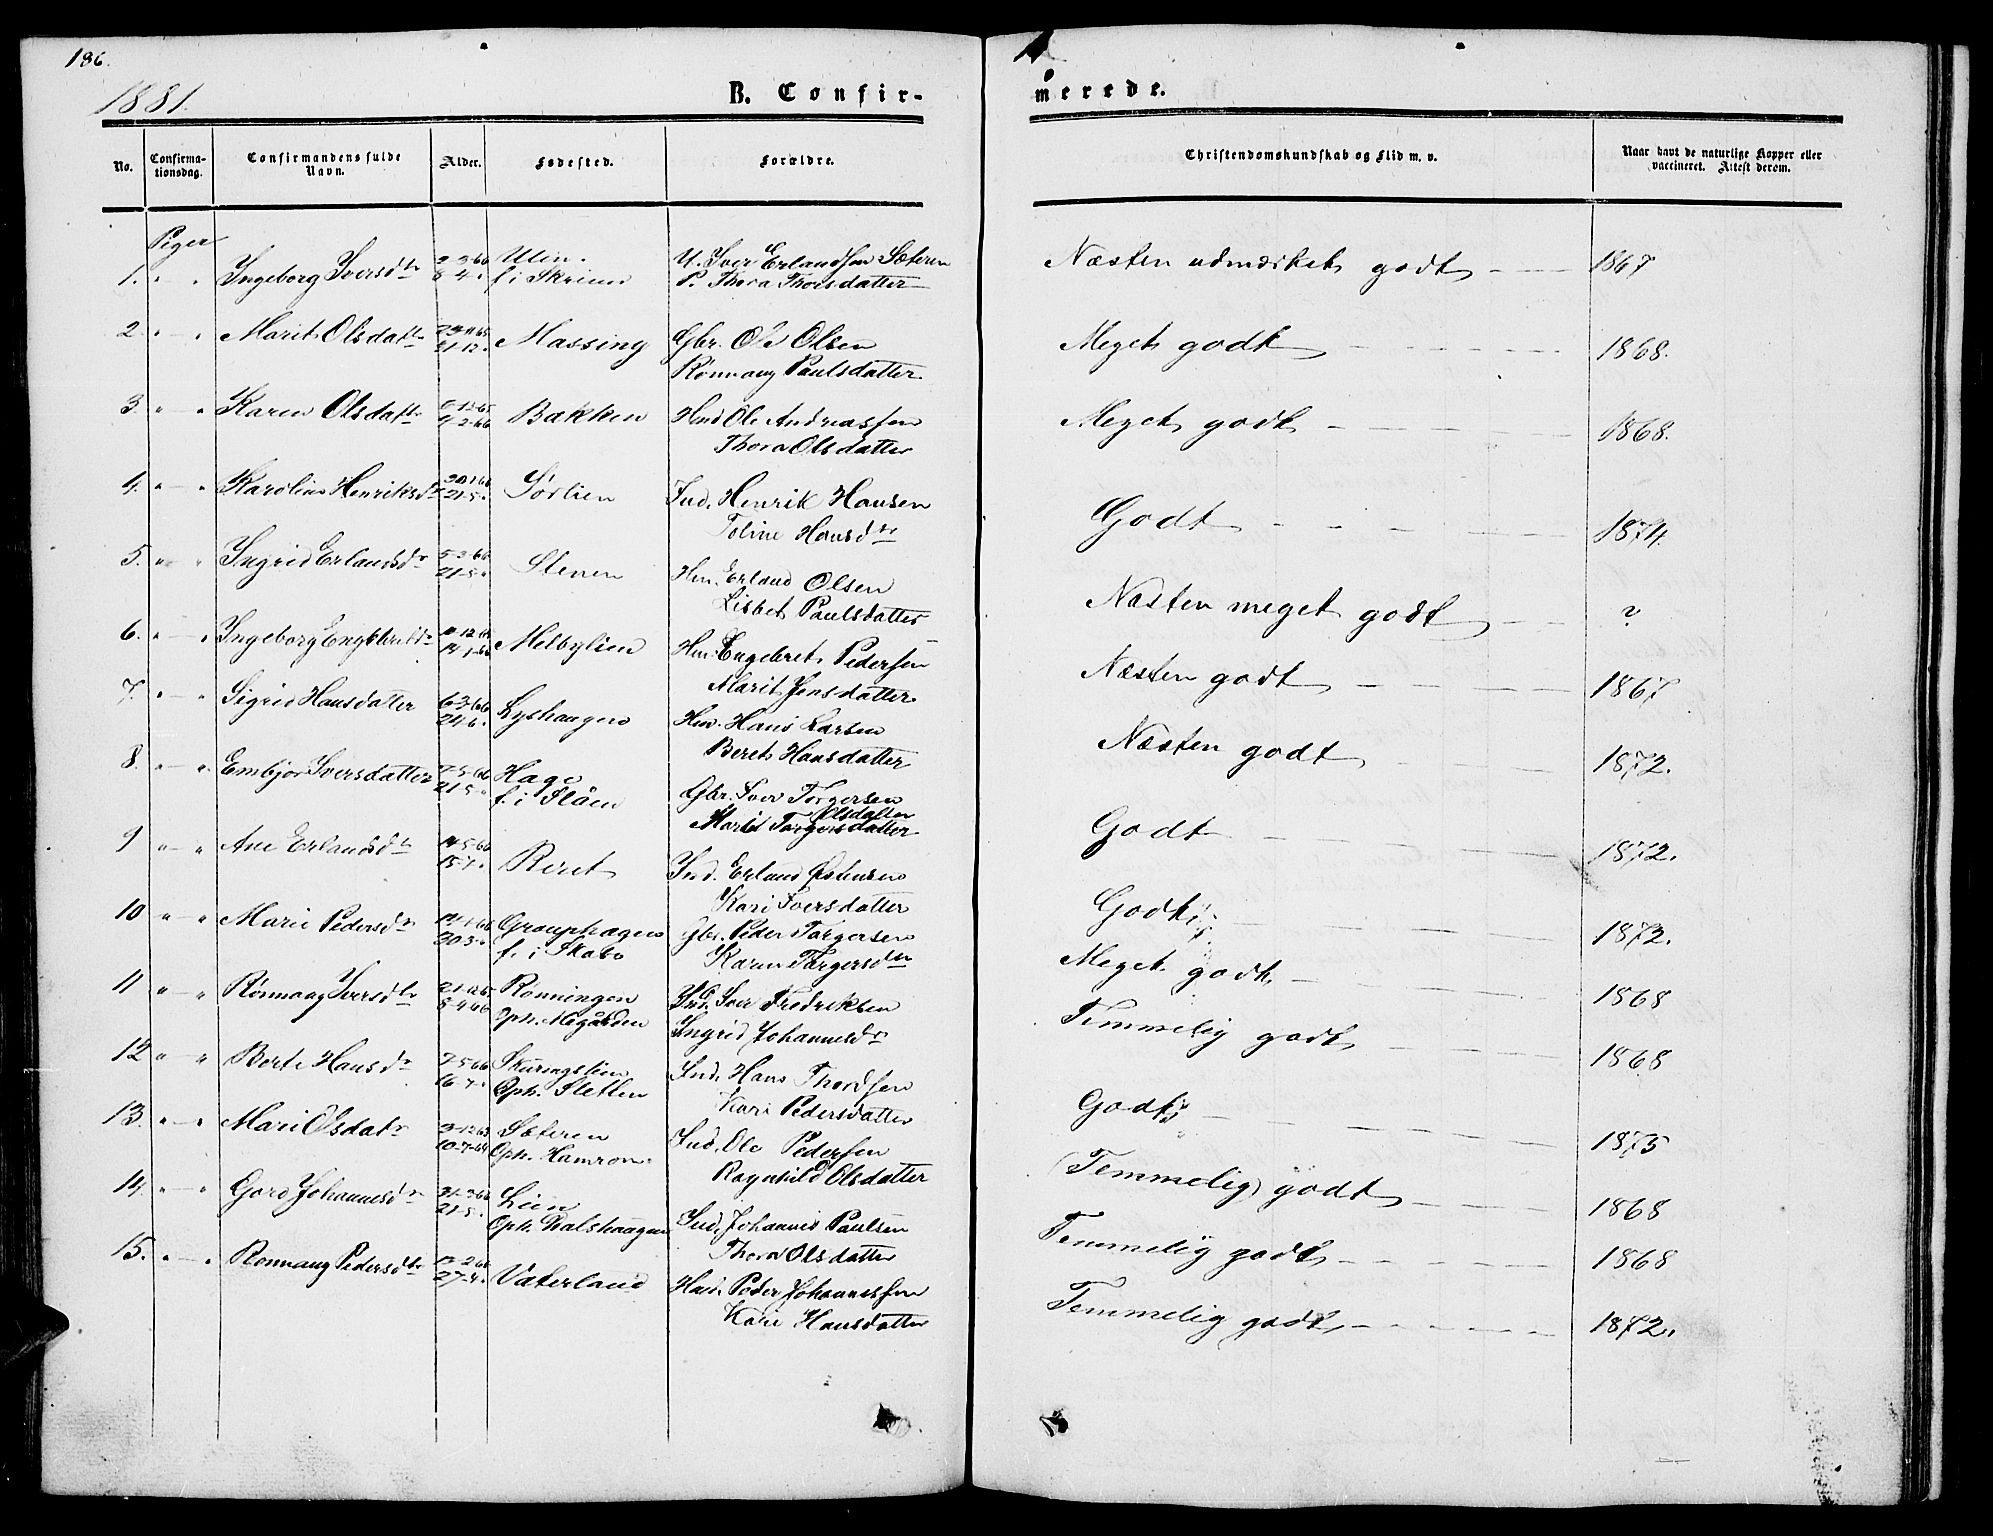 186.
1881.
B. Confir-
merede.
No.
Confirma-
tionsdag.
Confirmandens fulde
Navn.
Alder.
Fødested.
Forældre.
Christendomskundskab og Flid m. v.
Naar havt de naturlige Kopper eller
vaccineret. Attest derom.
Piger
1. " " Ingeborg Iversdtr 8-4 Ulin. f. i Skrinn U. Iver Erlandsen Sæteren
P. Thora Thorsdatter
Næsten udmærket godt 1867
2. " " Marit Olsdatr 21-12 Massing Gbr. Ole Olsen
Rønnaug Paulsdatter
Meget godt 1868.
3. " " Karen Olsdatr 9-2-66 Bakken Hmd Ole Andreassen
Thora Olsdatter
Meget godt 1868.
4. " " Karoline Henriksdr 30-1-66 21-5 " Sørlien Ind. Henrik Hansen
Toline Hansdtr
Godt 1874.
5. " " Ingrid Erlandsdr 5-3-66 21-5 " Stenen Hm. Erland Olsen
Lisbet Paulsdatter
Næsten meget godt ?
6. " " Ingeborg Engebretsdr 14-1-66 Melbylien Hm. Engebret Pedersen
Marit Jensdatter
Næsten godt 1867
7. " " Sigrid Hansdatter 6-3-66 24-6 " Lyshaugen Hm. Hans Larsen
Beret Hansdatter
Næsten godt 1872.
8. " " Embjør Iversdatter 7-5-66 21-5 " Hage f. i Flåen Gbr. Iver Torgersen
Olsdatter
Marit Torgersdatter
Godt 1872.
9 " " Ane Erlandsdtr 14-5-66 15-7 " Reret Ind. Erland Østensen
Kari Iversdatter
Godt 1872.
10 " " Marie Pedersdr 30-3 " Grouphagen f. i Skabo Gbr. Peder Torgersen
Karen Torgersdtr
Meget godt 1868
11 " " Rønnaug Iversdtr 21-12-65 8-4-66 Rønningen Oph. Megården Ind. Iver Fredriksen
Ingrid Johannesdr
Temmelig godt 1868
12 " " Berte Hansdr 7-5-66 16-7 " Skuringslien Oph. Sletten Ind. Hans Thordsen
Kari Pedersdatter
Godt 1875
13. " " Mari Olsdatr 3-12-63 10-7-64 Sæteren Oph. Hamron. Ind. Ole Pedersen
Ragnhild Olsdatter
(Temmelig) godt 1868
14. " " Goro Johannesdr 31-3-66 21-5 " Lien Oph. Dalshaugen Ind. Johannes Paulsen
Thora Olsdatter
Temmelig godt 1868
15. " " Rønnaug Pedersdtr 27-4 " Vaterland Hmd. Peder Johannessen
Kari Hansdatter
Temmelig godt 1872.